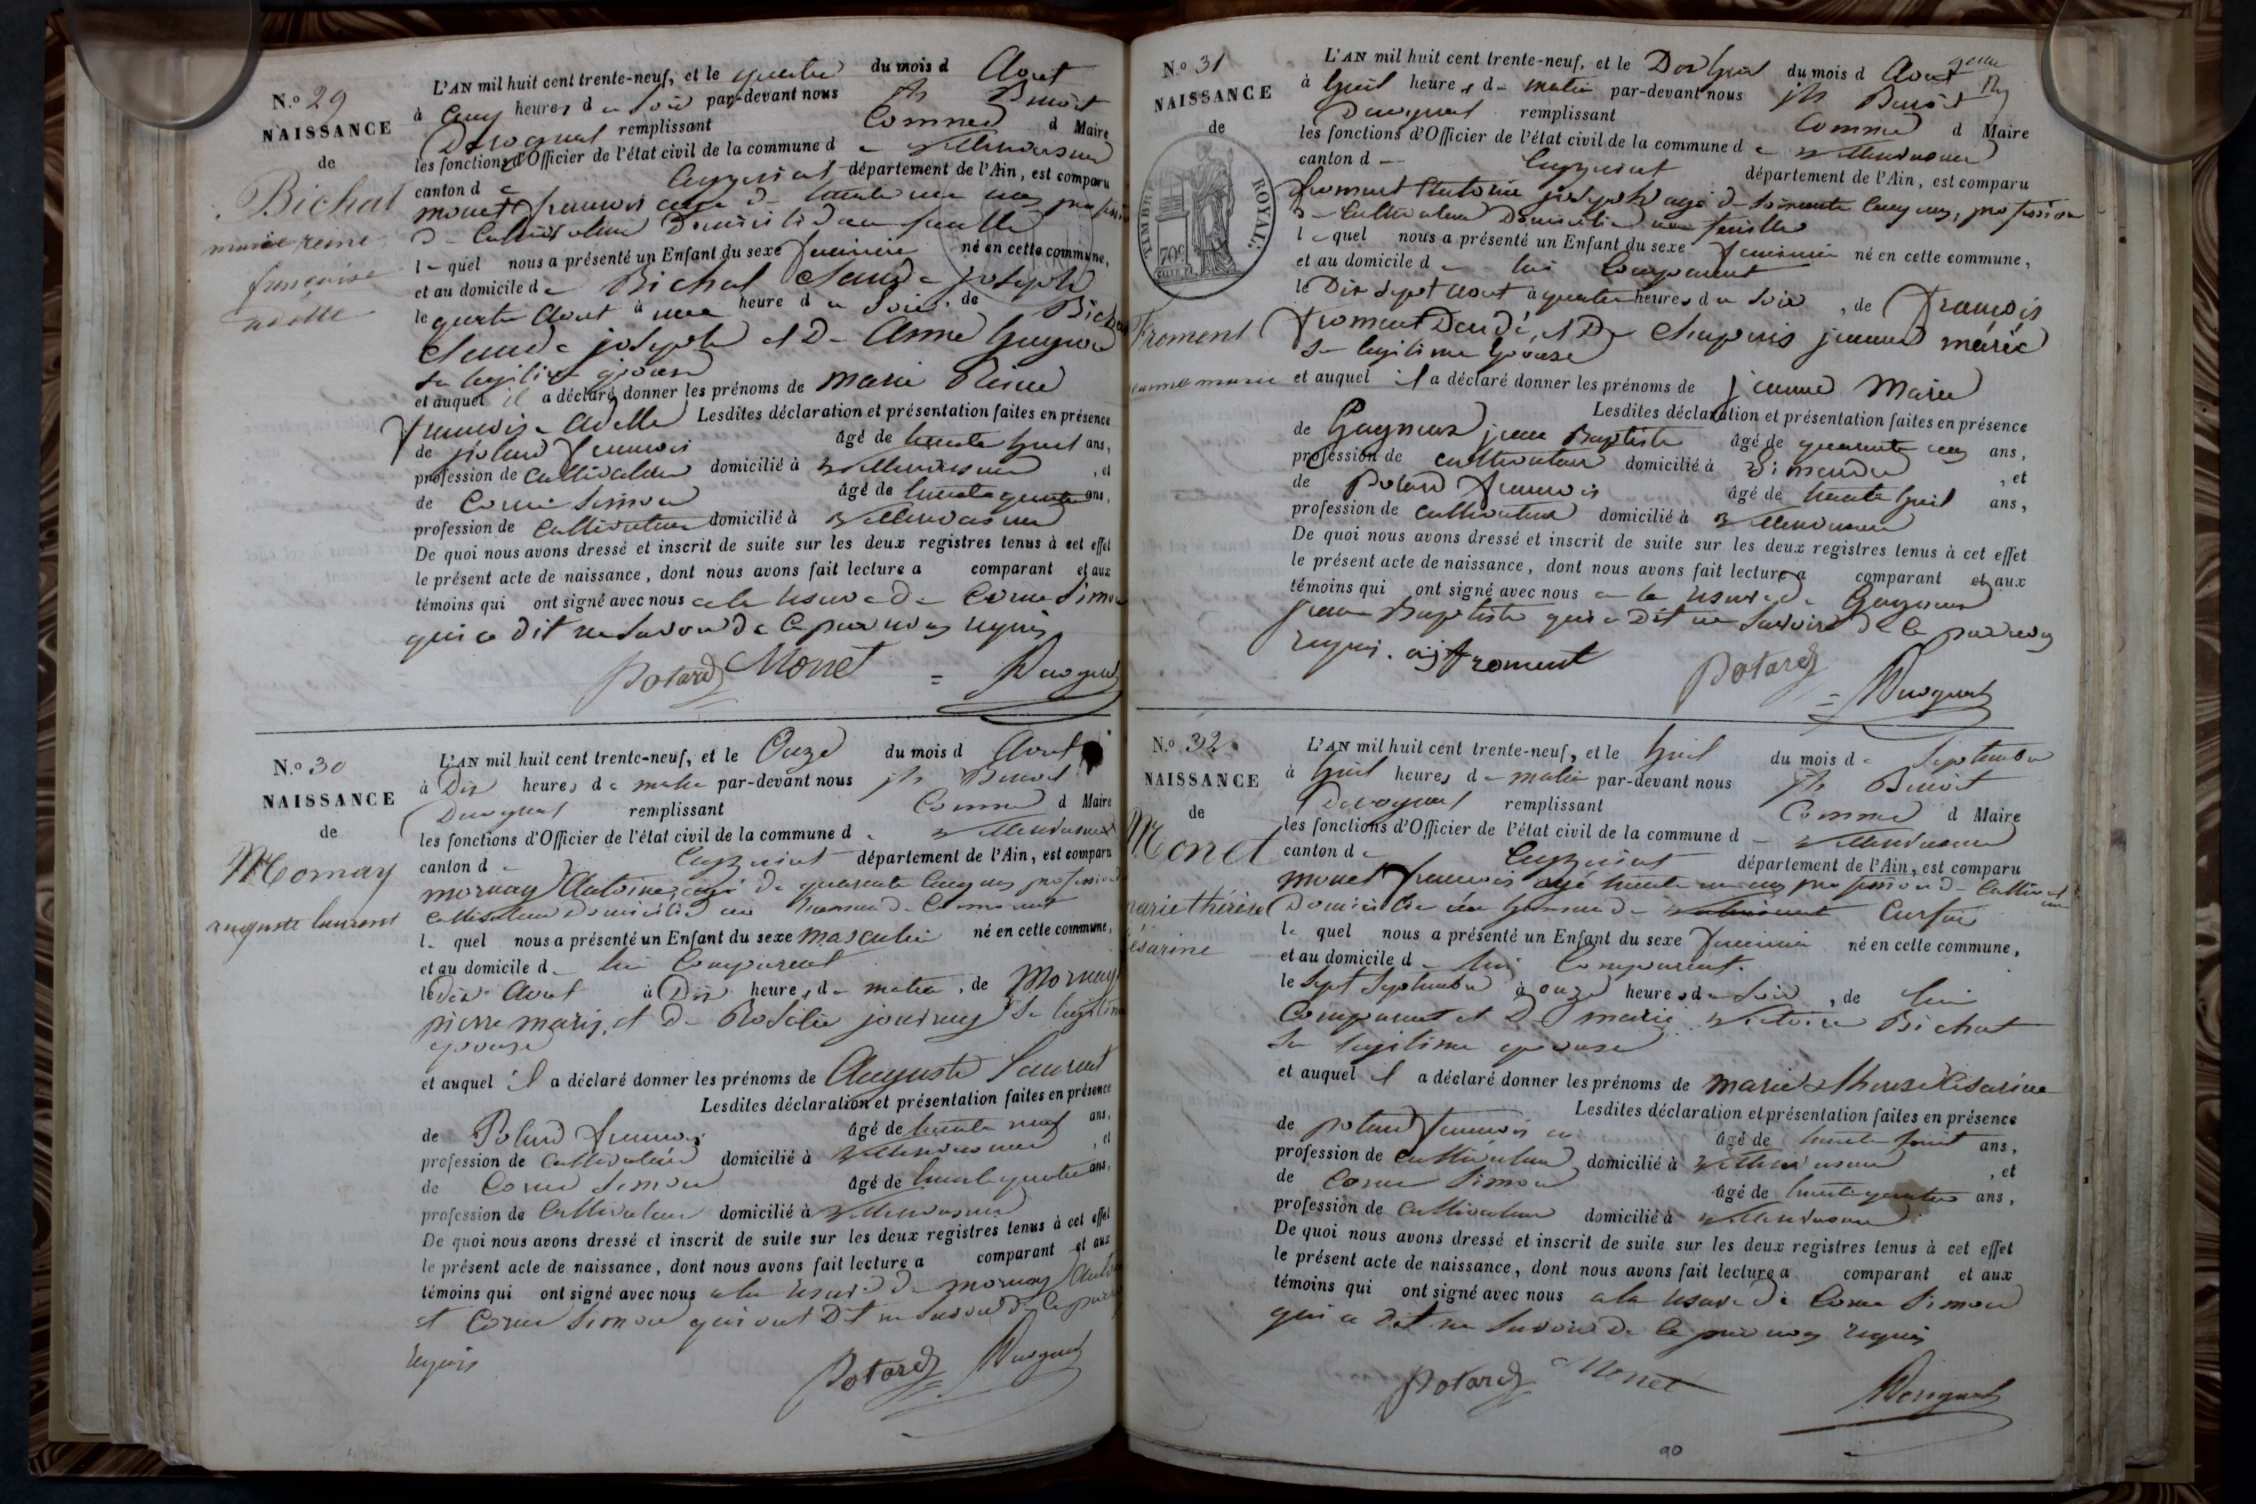 N.o 29
NAISSANCE
de
Bichat
marie reine
françoise
adelle
L'AN mil huit cent trente-neuf, et le quatre du mois d Aout
à cinq heures d u soir par-devant nous jh Benoit
remplissant Comme d Maire
les fonctions d'Officier de l'état civil de la commune d e
canton d e Ceyzeriat département de l'Ain, est comparu
monet françois agé de trente un ans profession
de Cultivateur Domicilié
l e quel nous a présenté un Enfant du sexe feminin né en cette commune,
et au domicile d e Bichat Claude joseph
le quatre Aout à une heure d u Soir, de Bichat
Claude joseph et De Anne
sa legitime epouse
et auquel il a déclaré donner les prénoms de marie Reine
françoise adelle Lesdites déclaration et présentation faites en présence
de potard francois âgé de trente huit ans,
profession de Cultivateur domicilié à , et
de Corne Simon âgé de trente quatre ans,
profession de Cultivateur domicilié à
De quoi nous avons dressé et inscrit de suite sur les deux registres tenus à cet effet
le présent acte de naissance, dont nous avons fait lecture a comparant et aux
témoins qui ont signé avec nous a la reserve de Corne Simon
qui a dit ne savoir de ce par nous requis
Potard Monet
N.o 30
NAISSANCE
de
Mornay
auguste laurent
L'AN mil huit cent trente-neuf, et le Onze du mois d Aout
à Dix heures d e matin par-devant nous jh Benoit
remplissant Comme d Maire
les fonctions d'Officier de l'état civil de la commune d e
canton d e Ceyzeriat département de l'Ain, est comparu
mornay Antoine, agé de quarante cinq ans profession
Cultivateur Domicilié au hameau de
l e quel nous a présenté un Enfant du sexe masculin né en cette commune,
et au domicile d e lui Comparant
le dix Aout à Dix heures d e matin, de Mornay
pierre marie, et de Rosalie journay Sa legitime
epouse
et auquel il a déclaré donner les prénoms de Auguste Laurent
Lesdites déclaration et présentation faites en présence
de Potard francois âgé de trente neuf ans,
profession de Cultivateur domicilié à , et
de Corne Simon âgé de trente quatre ans,
profession de Cultivateur domicilié à
De quoi nous avons dressé et inscrit de suite sur les deux registres tenus à cet effet
le présent acte de naissance, dont nous avons fait lecture a comparant et aux
témoins qui ont signé avec nous a la reserve de mornay Antoine
et Corne Simon qui ont Dit ne savoir de ce par
requis
Potard
N.o 31
NAISSANCE
de
TIMBRE ROYAL
70c
Froment
jeanne marie
L'AN mil huit cent trente-neuf, et le Dix huit du mois d Aout
à huit heures d e matin par-devant nous jh Benoit
remplissant Comme d Maire
les fonctions d'Officier de l'état civil de la commune d e
canton d e Ceyzeriat département de l'Ain, est comparu
froment Antoine joseph agé de soixante cinq ans, profession
de Cultivateur Domicilié
l e quel nous a présenté un Enfant du sexe feminin né en cette commune,
et au domicile d e lui Comparant
le Dix Sept Aout à quatre heures d u Soir, de françois
froment Dendé, et De Chapuis jeanne marie
sa legitime epouse
et auquel il a déclaré donner les prénoms de jeanne Marie
Lesdites déclaration et présentation faites en présence
de jean Baptiste âgé de quarante cinq ans,
profession de cultivateur domicilié à Simandre , et
de Potard francois âgé de trente huit ans,
profession de cultivateur domicilié à
De quoi nous avons dressé et inscrit de suite sur les deux registres tenus à cet effet
le présent acte de naissance, dont nous avons fait lecture a comparant et aux
témoins qui ont signé avec nous a la reserve de
jean Baptiste qui a Dit ne savoir de ce par nous
requis. ajfroment Potard
N.o 32
NAISSANCE
de
Monet
marie thérèse
césarine
L'AN mil huit cent trente-neuf, et le huit du mois d e Septembre
à huit heures d e matin par-devant nous jh Benoit
remplissant Comme d Maire
les fonctions d'Officier de l'état civil de la commune d
canton d e Ceyzeriat département de l'Ain, est comparu
monet francois agé trente un ans profession de Cultivateur
Domicilié au hameau de
l e quel nous a présenté un Enfant du sexe feminin né en cette commune,
et au domicile d e lui Comparant.
le sept Septembre à onze heures du Soir, de lui
Comparant et De marie victoire Bichat
sa legitime epouse
et auquel il a déclaré donner les prénoms de marie therese Césarine
Lesdites déclaration et présentation faites en présence
de potard francois âgé de trente huit ans,
profession de cultivateur domicilié à , et
de Corne Simon âgé de trente quatre ans,
profession de Cultivateur domicilié à
De quoi nous avons dressé et inscrit de suite sur les deux registres tenus à cet effet
le présent acte de naissance, dont nous avons fait lecture a comparant et aux
témoins qui ont signé avec nous a la reserve de Corne Simon
qui a Dit ne savoir de ce par nous requis
Potard Monet
90